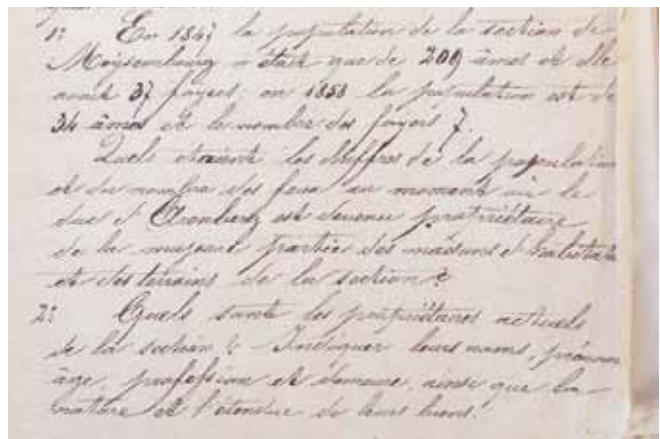 1: En 1847 la population de la section de
Meysembourg n'était que de 209 âmes et elle
avait 37 foyers; en 1858 la population est de
34 âmes et le nombre des foyers 7.
Quels étaient les chiffres de la population
et du nombre des feux au moment où le
duc d'Arenberg est devenu propriétaire
de la majeure partie des maisons d'habitation
et des terrains de la section?
2: Quels sont les propriétaires actuels
de la section? Indiquer leurs noms, prénoms
âge, profession et demeure, ainsi que la
nature et l'étendue de leurs biens.